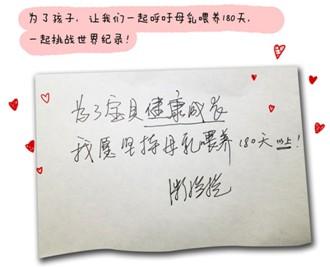 为了孩子，让我们一起呼吁母乳喂养180天，
一起挑战世界纪录！
为了宝贝健康成长
我愿坚持母乳喂养180天以上！